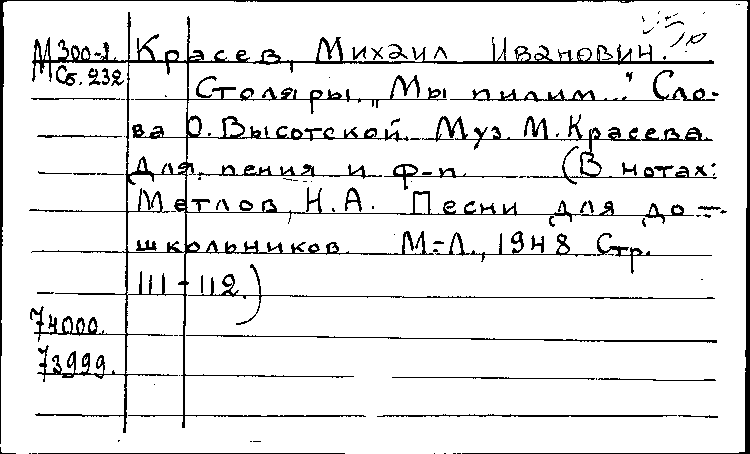 М 300-1. Красев, Михаил Иванович.
Сб. 232
Столяры. „Мы пилим..." Сло-
ва О. Высотской. Муз. М. Красева.
Для пения и ф-п. (В нотах:
Метлов, Н. А. Песни для до-
школьников. М.-Л., 1948. Стр.
111-112.)
74000.
73999.